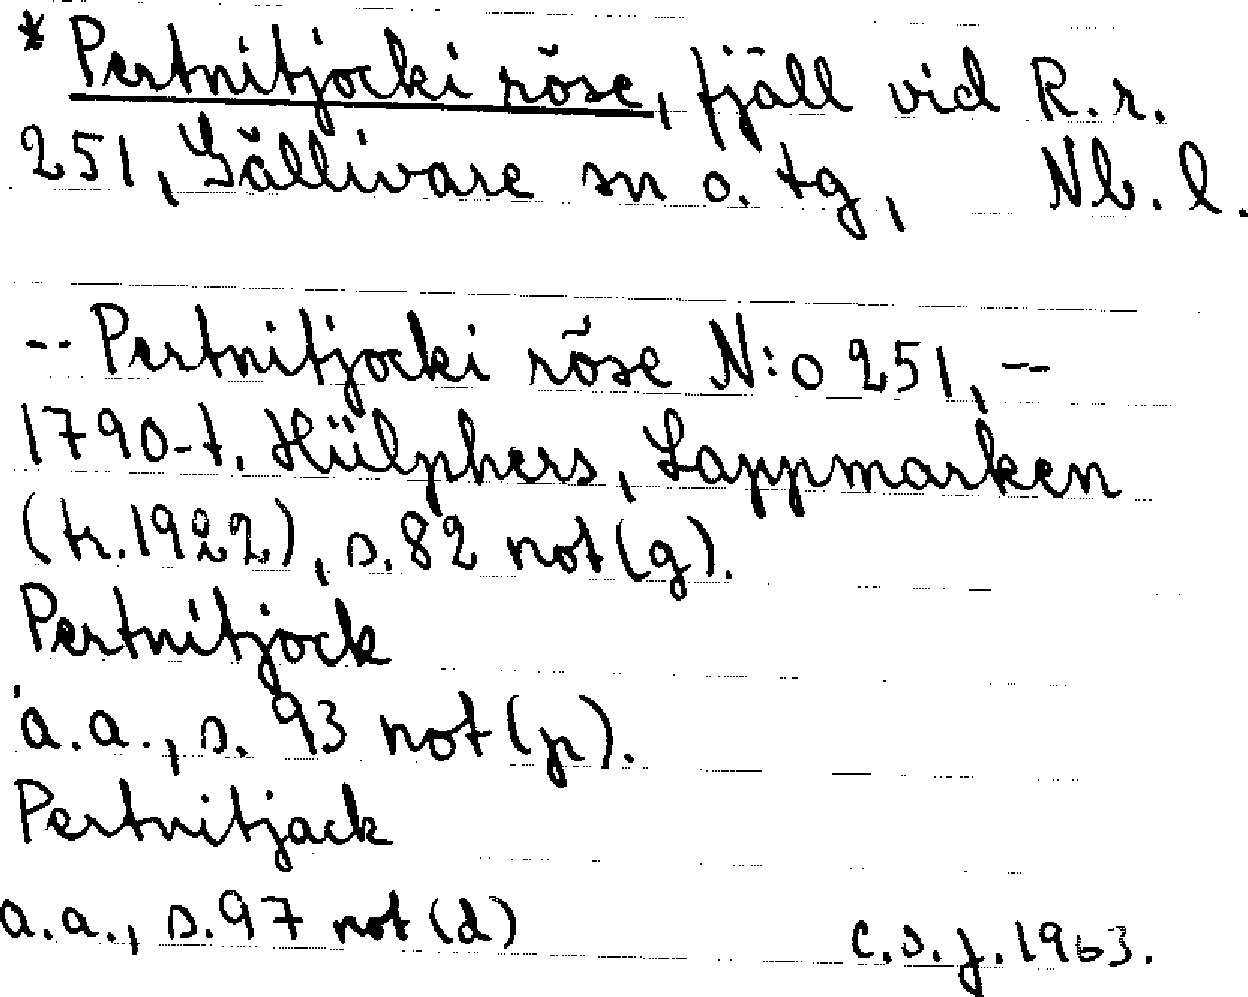 * Pertnitjocki röse, fjäll vid R.r.
251, Gällivare sn o. tg, Nb. l.
-- Pertnitjocki röse N:o 251, --
1790-t. Hülphers, Lappmarken
(tr. 1922), s. 82 not (g).
Pertnitjock
a.a., s. 93 not (p).
Pertnitjack
a.a., s. 97 not (d)
C.S.J. 1963.